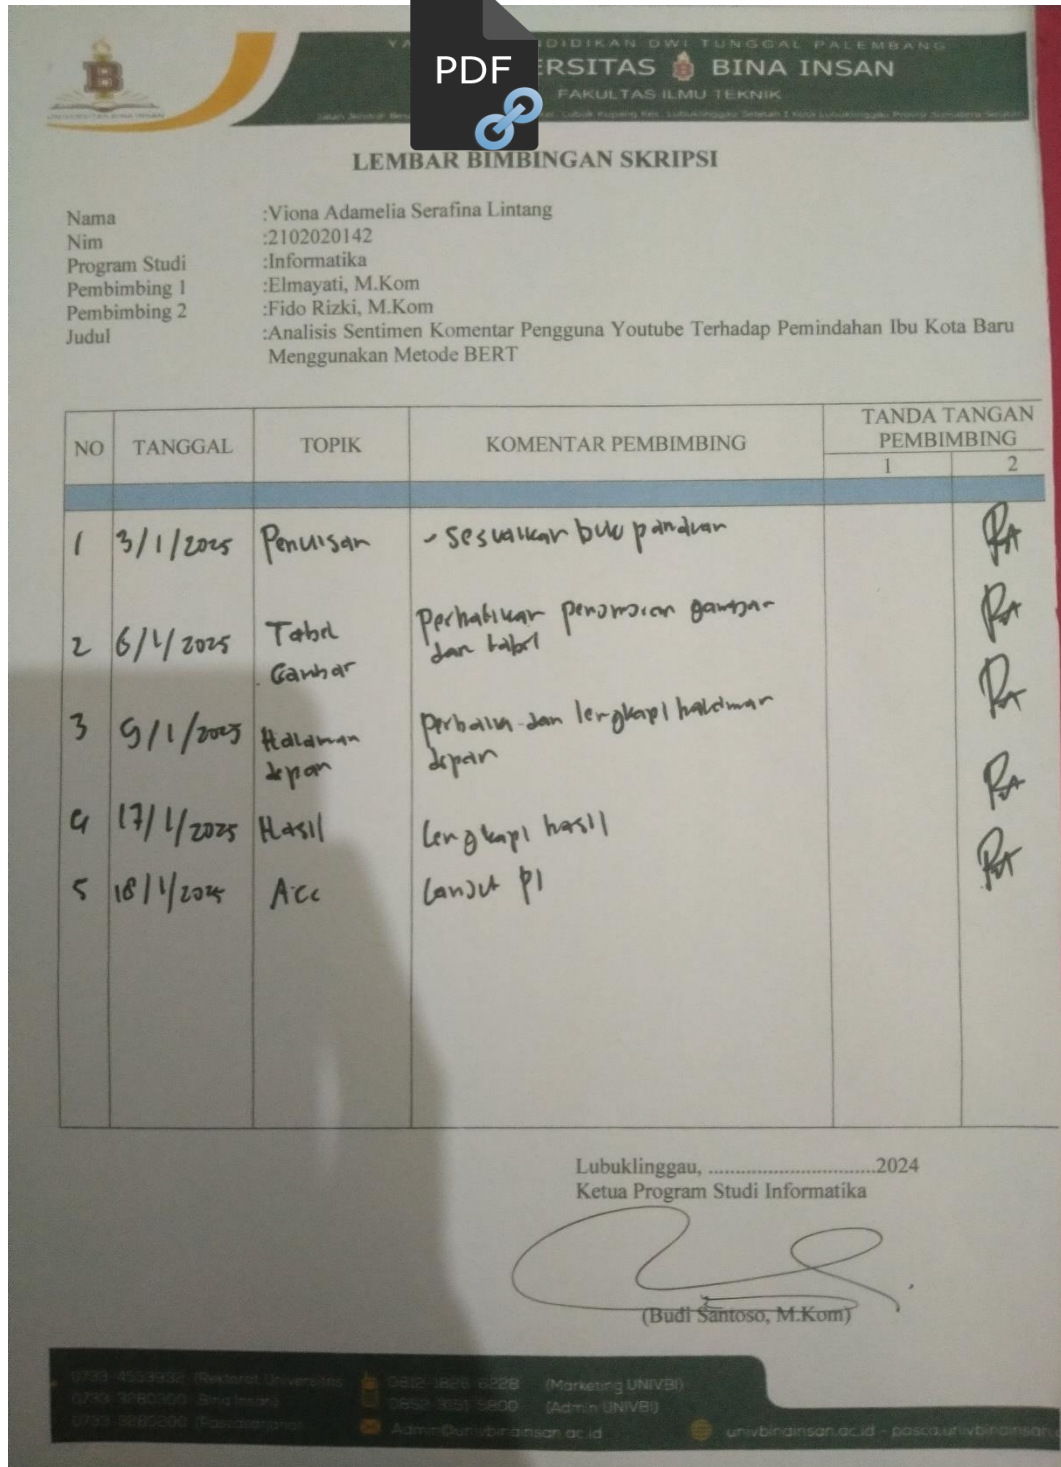 PDF
DIDIKAN DWI TUNGGAL PALEMBANG
ERSITAS BINA INSAN
FAKULTAS ILMU TEKNIK
LEMBAR BIMBINGAN SKRIPSI
Nama :Viona Adamelia Serafina Lintang
Nim :2102020142
Program Studi :Informatika
Pembimbing 1 :Elmayati, M.Kom
Pembimbing 2 :Fido Rizki, M.Kom
Judul :Analisis Sentimen Komentar Pengguna Youtube Terhadap Pemindahan Ibu Kota Baru
Menggunakan Metode BERT
NO TANGGAL TOPIK KOMENTAR PEMBIMBING TANDA TANGAN PEMBIMBING
1 2
1 3/1/2025 Penulisan - Sesuaikan buku panduan
2 6/1/2025 Tabel Gambar Perhatikan penomoran gambar dan tabel
3 9/1/2025 Halaman depan Perbaiki dan lengkapi halaman depan
4 17/1/2025 Hasil Lengkapi hasil
5 18/1/2025 Acc Lanjut P1
Lubuklinggau, ................................2024
Ketua Program Studi Informatika
(Budi Santoso, M.Kom)
0733-3280300 (Bina Insan)
0733-3280200 (Pascasarjana)
(Marketing UNIVBI)
(Admin UNIVBI)
Admin@univbinainsan.ac.id
univbinainsan.ac.id - pasca.univbinainsan